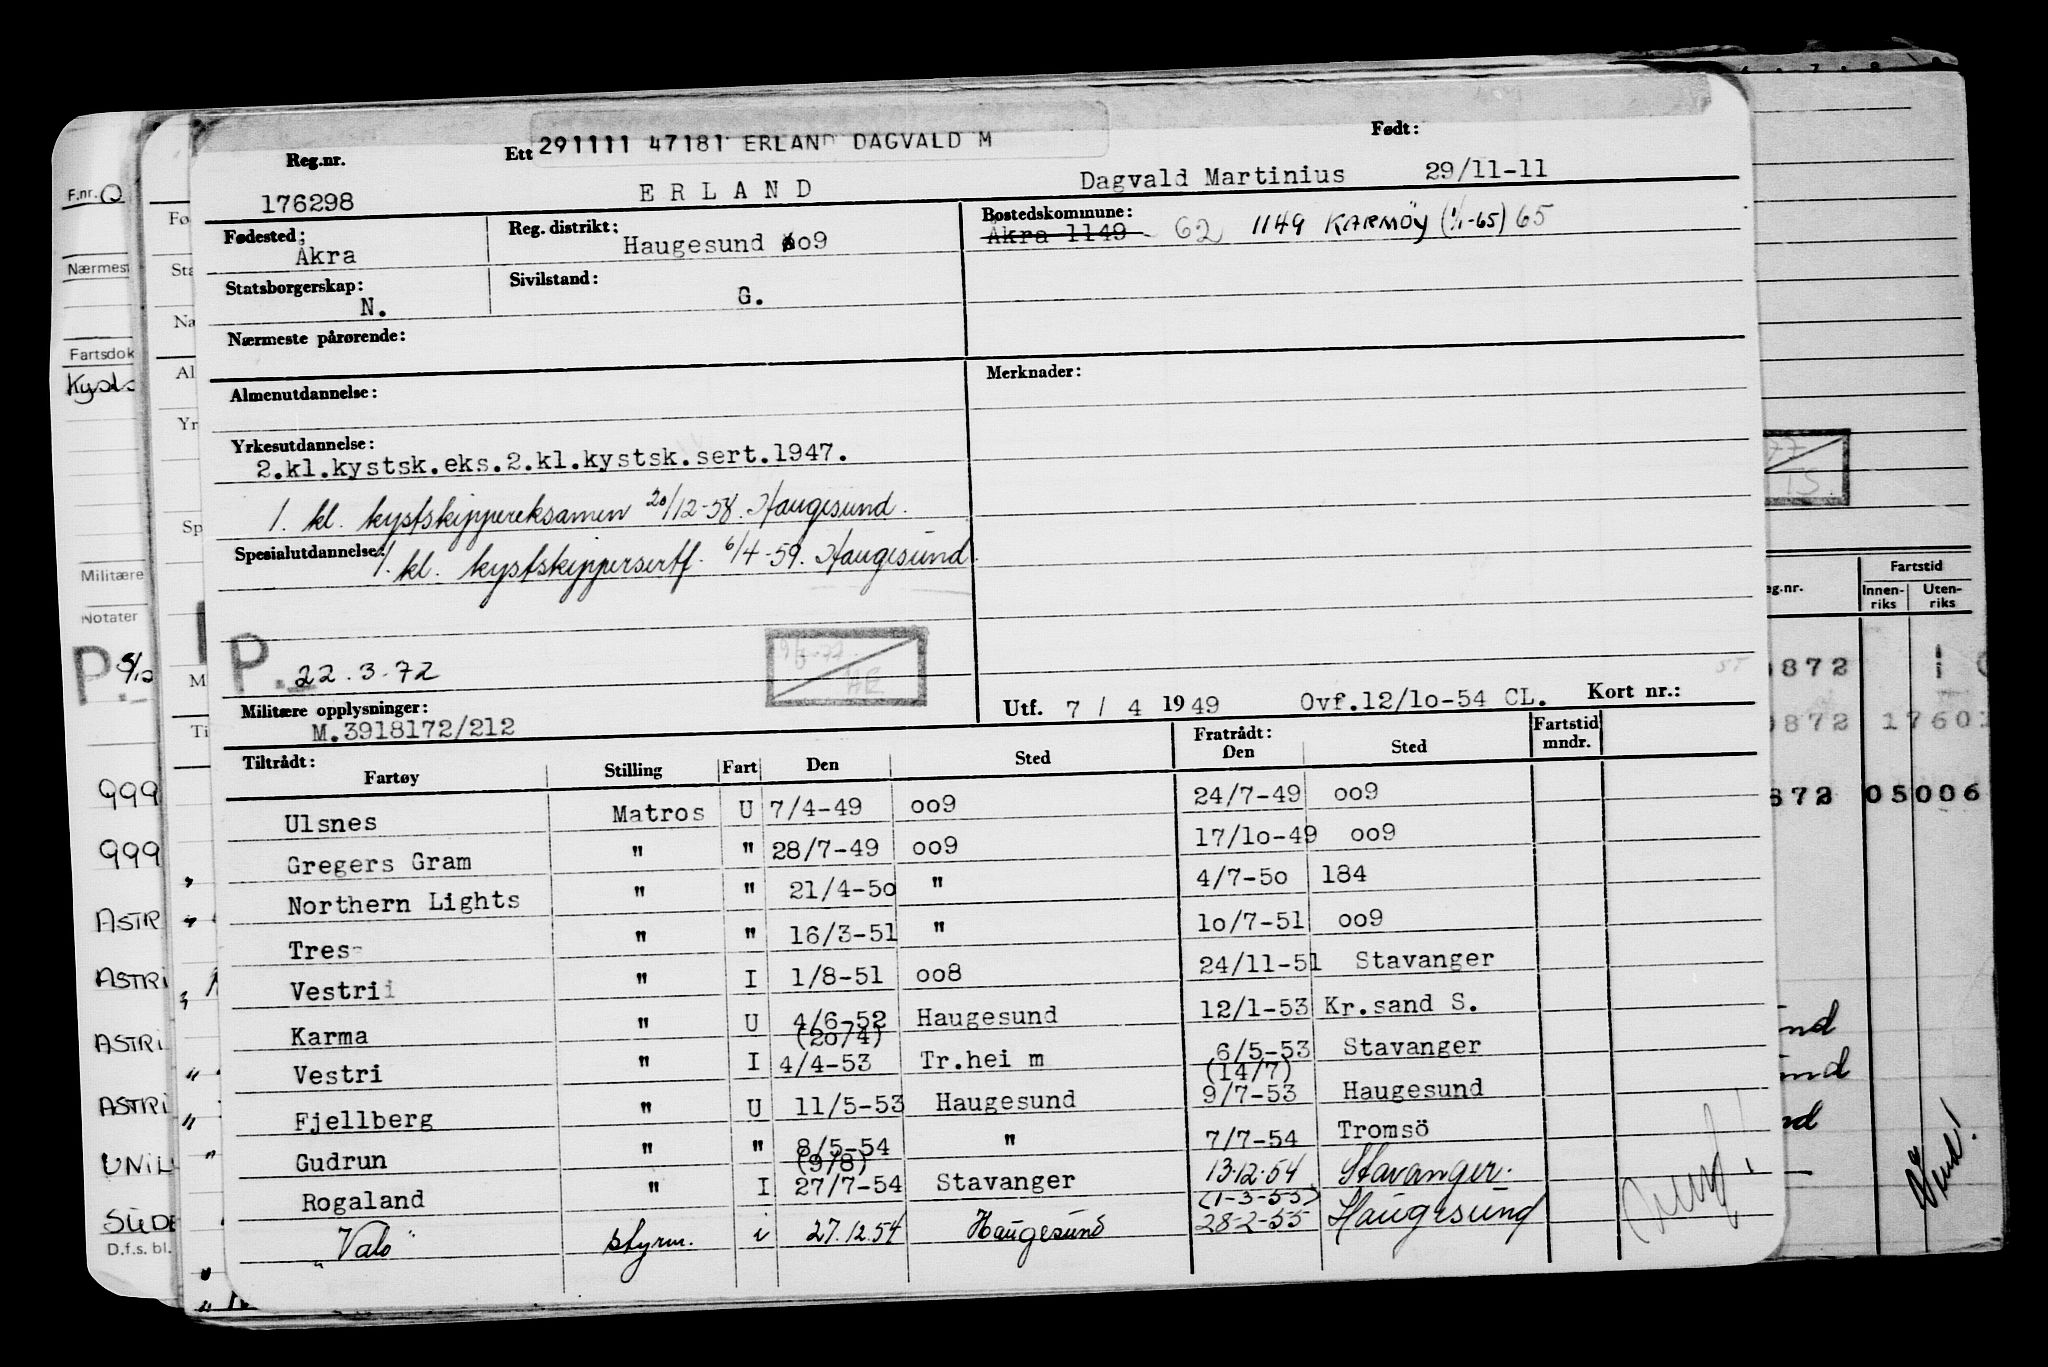 Reg.nr. Ett 291111 47181 ERLAND DAGVALD M Født:
176298 E R L A N D Dagvald Martinius 29/11-11
Fødested: Åkra Reg. distrikt: Haugesund oo9 Bostedskommune: Åkra 1149 62 1149 KARMÖY (1/1-65) 65
Statsborgerskap: N. Sivilstand: G.
Nærmeste pårørende:
Almenutdannelse: Merknader:
Yrkesutdannelse:
2.kl.kystsk.eks.2.kl.kystsk.sert.1947.
1. kl. kystskippereksamen 20/12-58. Haugesund.
Spesialutdannelse: 1. kl. kystskippersertf. 6/4-59. Haugesund.
P. 22.3.72
Militære opplysninger: Utf. 7 / 4 1949 Ovf.12/1o-54 CL. Kort nr.:
M.3918172/212
Tiltrådt: Fratrådt: Fartstid
Fartøy Stilling Fart Den Sted Den Sted mndr.
Ulsnes Matros U 7/4-49 oo9 24/7-49 oo9
Gregers Gram " " 28/7-49 oo9 17/1o-49 oo9
Northern Lights " " 21/4-5o " 4/7-5o 184
Tres " " 16/3-51 " 1o/7-51 oo9
Vestri " I 1/8-51 oo8 24/11-51 Stavanger
Karma " U 4/6-52 Haugesund 12/1-53 Kr.sand S.
(2o/4)
Vestri " I 4/4-53 Tr.hei m 6/5-53 Stavanger
(14/7)
Fjellberg " U 11/5-53 Haugesund 9/7-53 Haugesund
Gudrun " " 8/5-54 " 7/7-54 Tromsö
(9/8)
Rogaland " I 27/7-54 Stavanger 13.12.54 Stavanger.
(1-3-55)
"Valo" styrm. i 27.12.54 Haugesund 28-2-55 Haugesund
F.nr.
Nærmest
Fartsdok
Kysts
Militære
Notater
P. 5/12
999
999
ASTR
ASTRI
ASTRI
ASTRI
UNIL
SUDE
D.f.s. bl.
Fø
Sta
Na
Al
Yr
Sp
M
Ti
77
TS.
eg.nr. Fartstid
Innen-riks Uten-riks
872
872 17601
872 05006